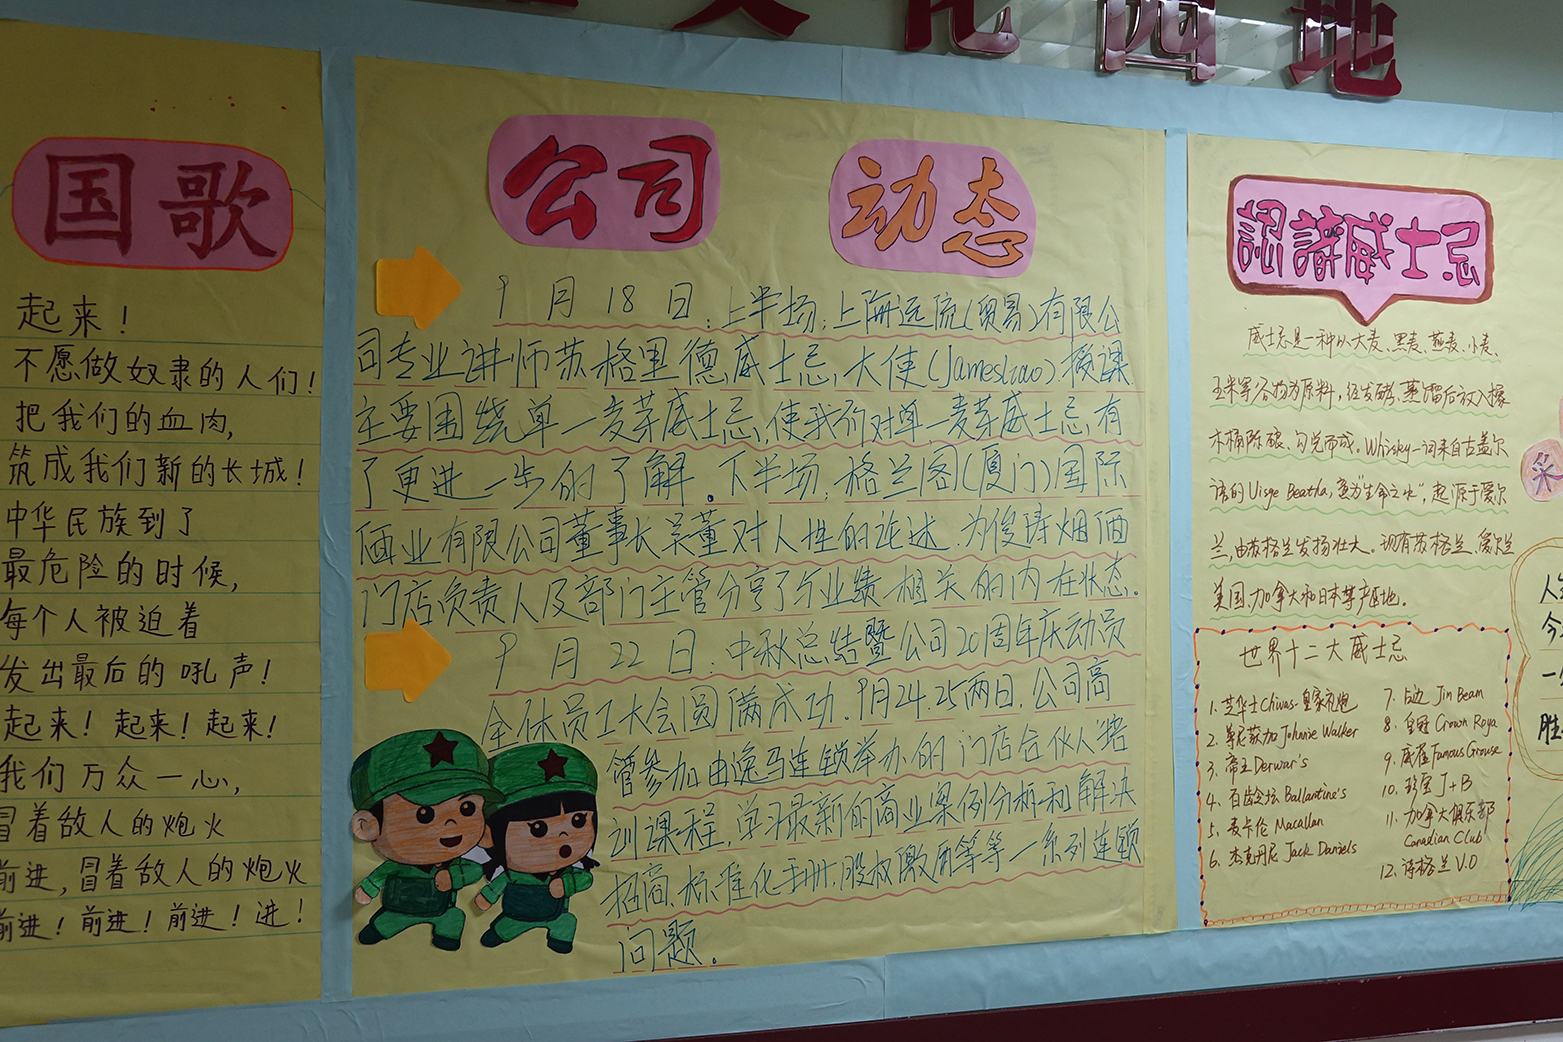 文化园地
国歌
起来!
不愿做奴隶的人们!
把我们的血肉,
筑成我们新的长城!
中华民族到了
最危险的时候,
每个人被迫着
发出最后的吼声!
起来!起来!起来!
我们万众一心,
冒着敌人的炮火
前进,冒着敌人的炮火
前进!前进!前进!进!
公司 动态
9月18日:上半场:上海远流(贸易)有限公
司专业讲师苏格里德威士忌,大使(Jamesliao).授课
主要围绕单一麦芽威士忌,使我们对单一麦芽威士忌有
了更进一步的了解。下半场:格兰图(厦门)国际
酒业有限公司董事长吴董对人性的论述.为俊涛烟酒
门店负责人及部门主管分享了个业绩相关的内在状态。
9月22日:中秋总结暨公司20周年庆动员
全体员工大会圆满成功.9月24.25两日.公司高
管参加由逸马连锁举办的"门店合伙人"培
训课程,学习最新的商业案例分析和解决
招商.标准化手册.股权激励等等一系列连锁
问题。
認識威士忌
威士忌是一种以大麦、黑麦、燕麦、小麦、
玉米等谷物为原料,经发酵,蒸馏后放入橡
木桶陈酿、勾兑而成。Whisky一词来自古盖尔
语的Uisge Beatha,意为"生命之水",起源于爱尔
兰,由苏格兰发扬壮大。现有苏格兰、爱尔兰
美国.加拿大和日本等产区地。
世界十二大威士忌
1.芝华士Chivas·皇家礼炮
2.尊尼获加Johnnie Walker
3.帝王Derwar's
4.百龄坛Ballantine's
5.麦卡伦Macallan
6.杰克丹尼Jack Daniels
7.占边Jin Beam
8.皇冠Crown Roya
9.威雀Famous Grouse
10.珍宝J+B
11.加拿大俱乐部
Canadian Club
12.诗格兰V.O
人
今
一
胜